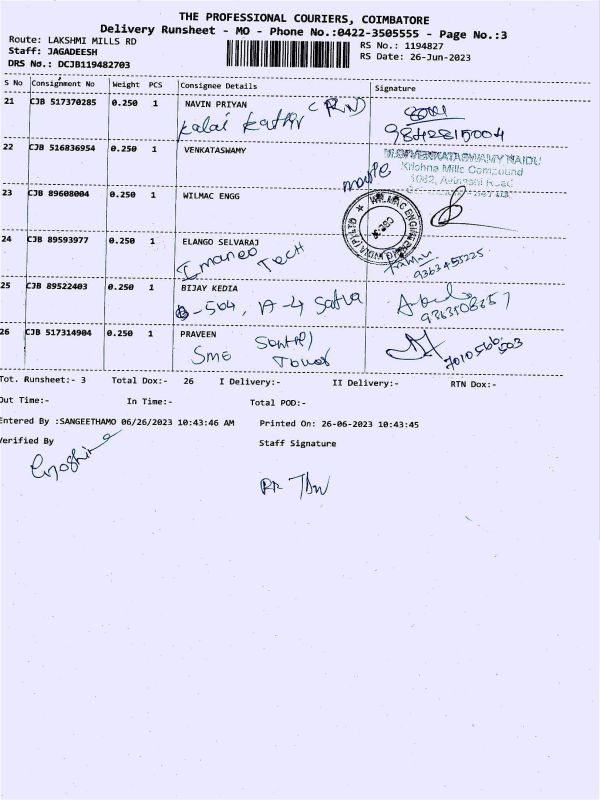 THE PROFESSIONAL COURIERS, COIMBATORE
Delivery Runsheet - MO - Phone No.:0422-3505555 - Page No.:3
Route: LAKSHMI MILLS RD
RS No.: 1194827
Staff: JAGADEESH
RS Date: 26-Jun-2023
DRS No.: DCJB119482703
S No Consignment No Weight PCS Consignee Details Signature
21 CJB 517370285 0.250 1 NAVIN PRIYAN
Kalai Kathir
9842815004
22 CJB 516836954 0.250 1 VENKATASWAMY
VENKATASWAMY NAIDU
Krishna Mills Compound
1082, Avinashi Road
23 CJB 89608004 0.250 1 WILMAC ENGG
24 CJB 89593977 0.250 1 ELANGO SELVARAJ
Tech
9363455225
25 CJB 89522403 0.250 1 BIJAY KEDIA
B-504, A-4 Satva
26 CJB 517314904 0.250 1 PRAVEEN
SME
Tower
Tot. Runsheet:- 3 Total Dox:- 26 I Delivery:- II Delivery:- RTN Dox:-
Out Time:- In Time:- Total POD:-
Entered By :SANGEETHAMO 06/26/2023 10:43:46 AM Printed On: 26-06-2023 10:43:45
Verified By Staff Signature